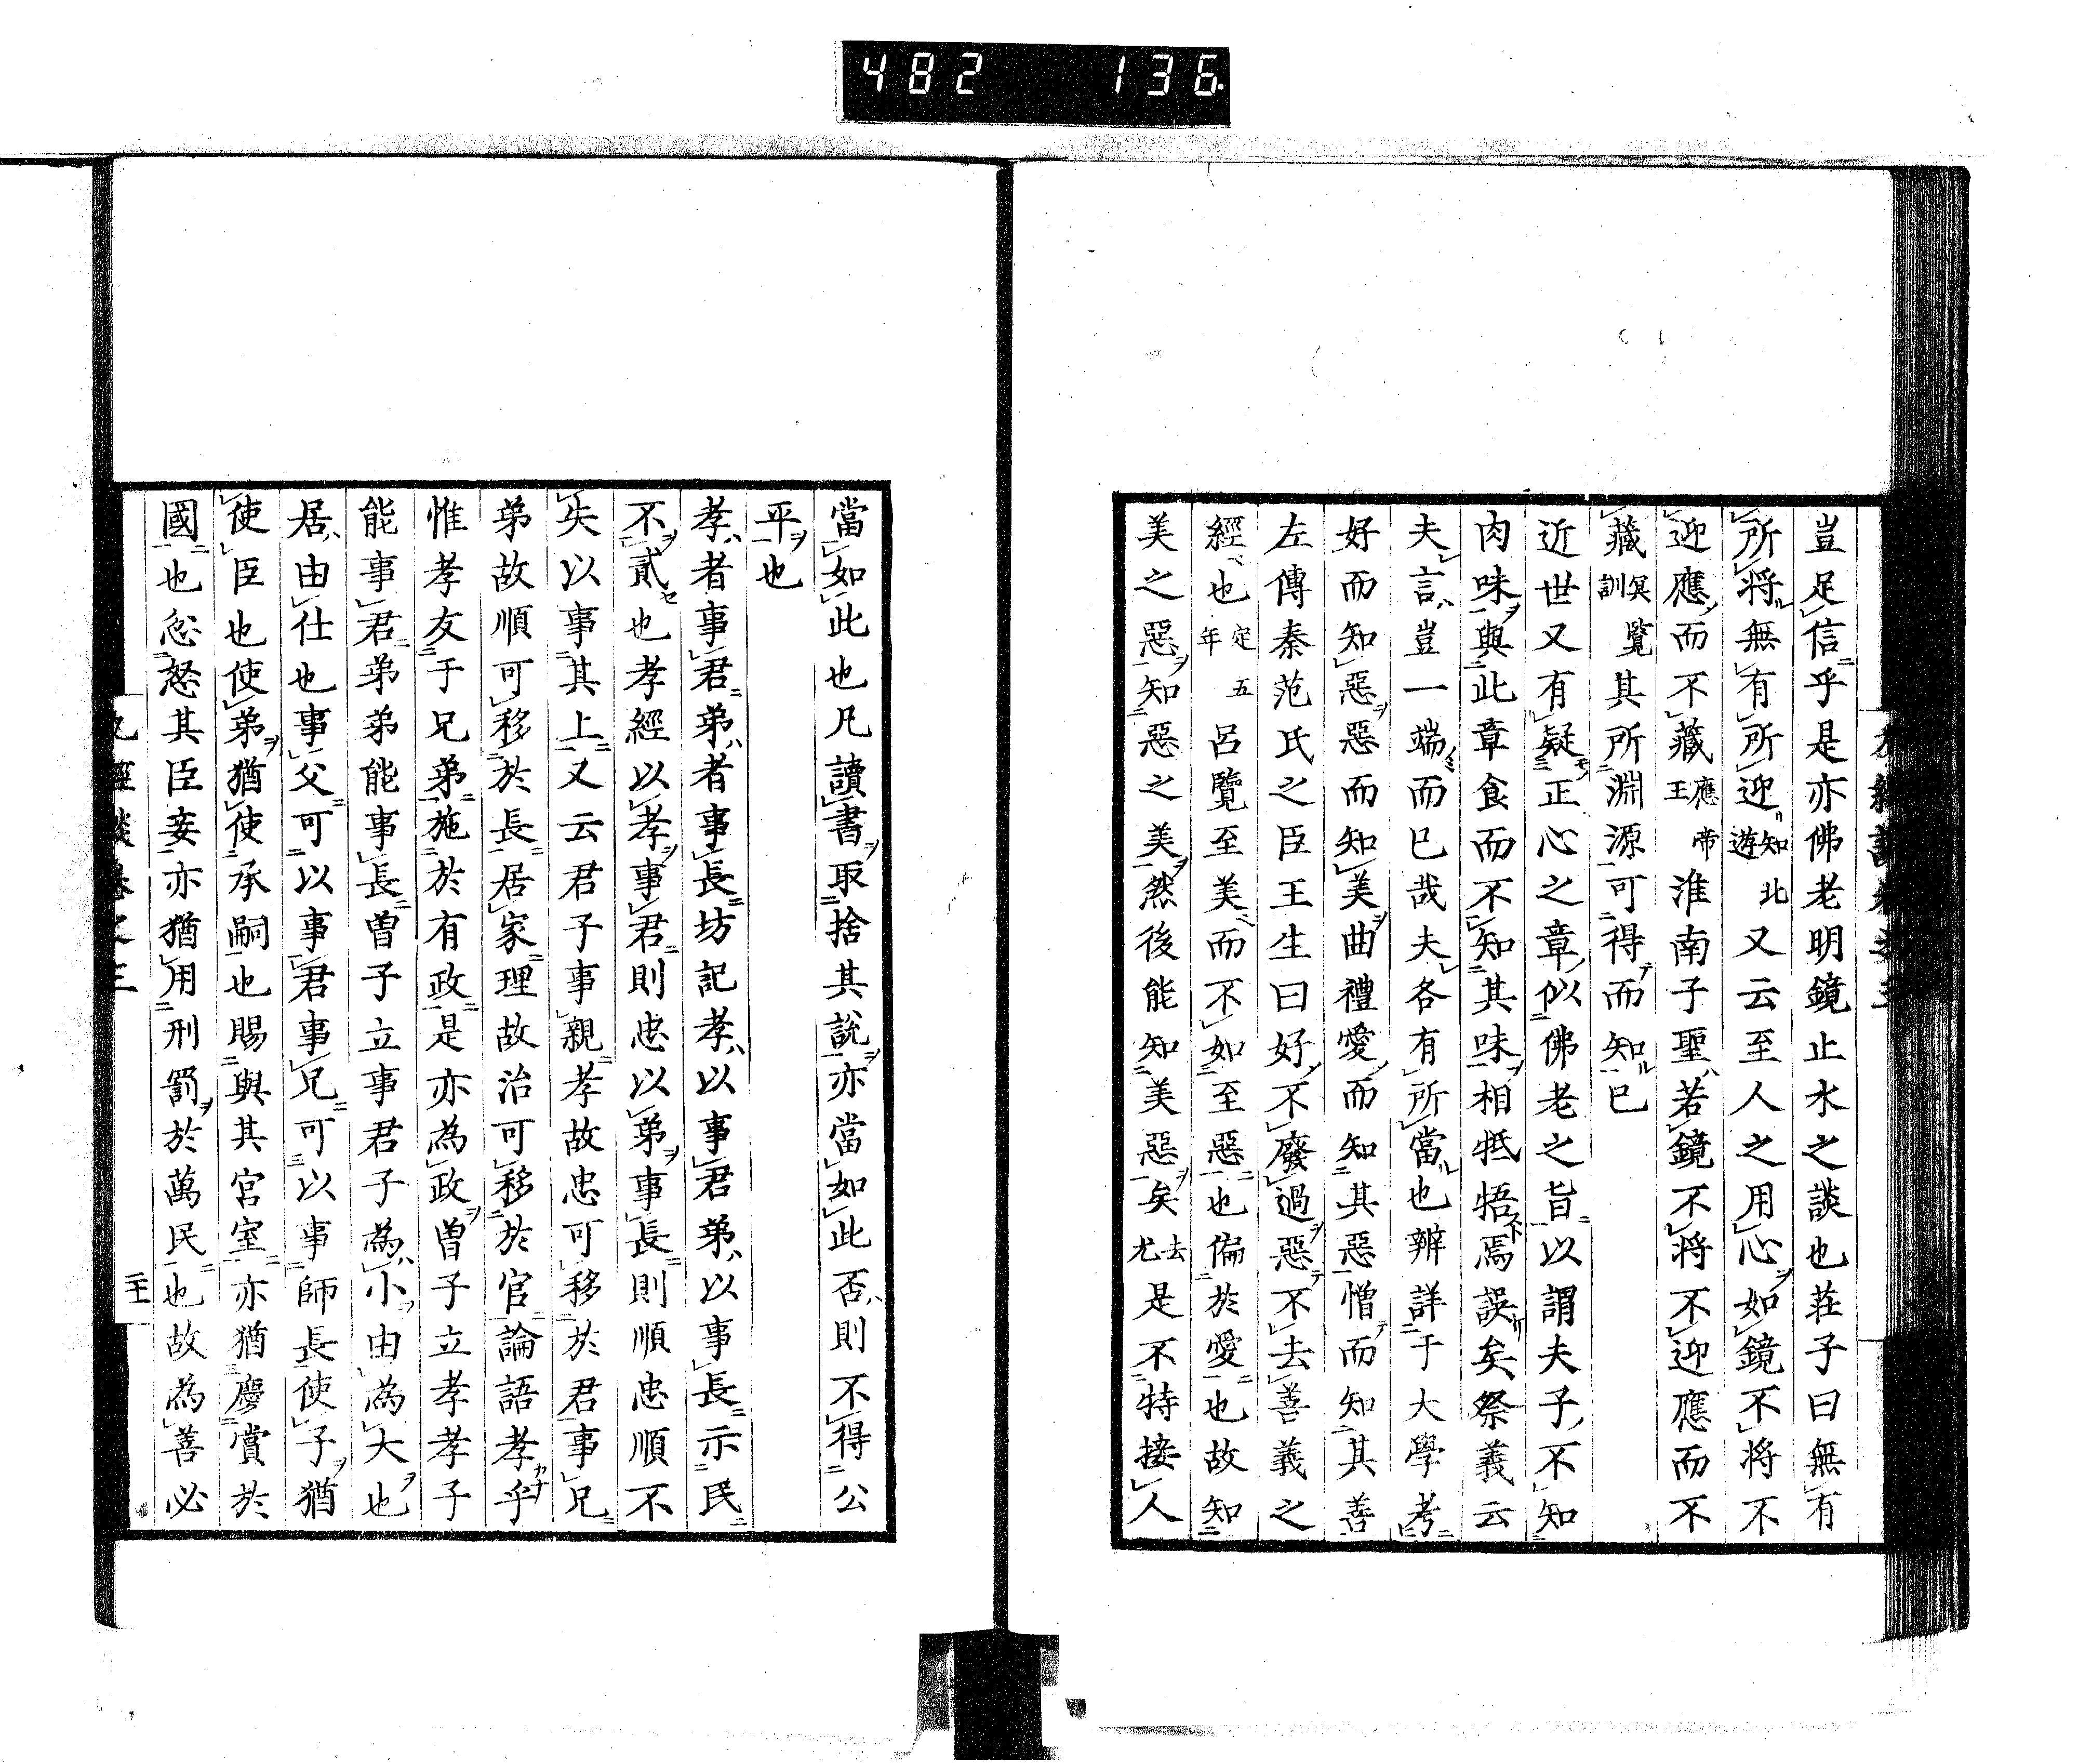 482 136
豈足信乎是亦佛老明鏡止水之談也莊子曰無有
所将無有所迎知北遊又云至人之用心如鏡不将不
迎應而不藏應帝王淮南子聖若鏡不将不迎應而不
藏冥覧訓其所淵源可得而知已
近世又有疑正心之章似佛老之旨以謂夫子不知
肉味與此章食而不知其味相牴牾焉誤矣祭義云
夫言豈一端而已哉夫各有所當也辨詳于大學考
好而知惡惡而知美曲禮愛而知其惡憎而知其善
左傳秦范氏之臣王生曰好不廢過惡不去善義之
經也定五年呂覽至美而不如至惡也偏於愛也故知
美之惡知惡之美然後能知美惡矣去尤是不特接人
當如此也凡讀書取捨其説亦當如此否則不得公
平也
孝者事君弟者事長坊記孝以事君弟以事長示民
不貳也孝經以孝事君則忠以弟事長則順忠順不
失以事其上又云君子事親孝故忠可移於君事兄
弟故順可移於長居家理故治可移於官論語孝乎
惟孝友于兄弟施於有政是亦為政曽子立孝孝子
能事君弟弟能事長曽子立事君子為小由為大也
居由仕也事父可以事君事兄可以事師長使子猶
使臣也使弟猶使承嗣也賜與其宮室亦猶慶賞於
國也忿怒其臣妾亦猶用刑罰於萬民也故為善必
經談巻之三